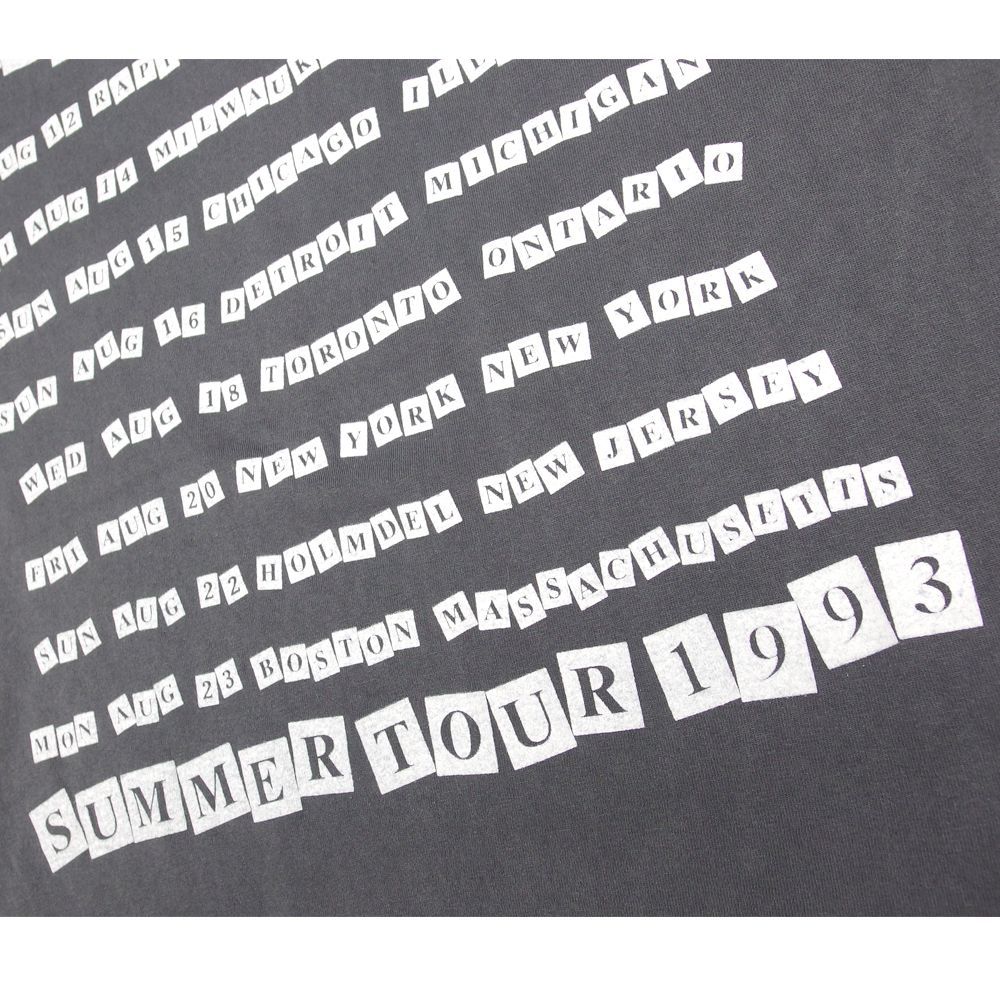 UG 12 RAPI
AUG 14 MILWAUK
SUN AUG 15 CHICAGO ILL
SUN AUG 16 DETROIT MICHIGAN
WED AUG 18 TORONTO ONTARIO
FRI AUG 20 NEW YORK NEW YORK
SUN AUG 22 HOLMDEL NEW JERSEY
MON AUG 23 BOSTON MASSACHUSETTS
SUMMER TOUR 1993